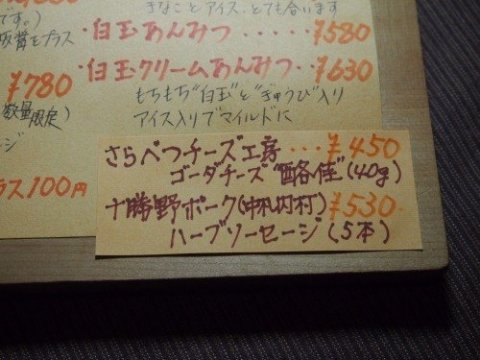 きなことアイス、とても合います
です。)
・白玉あんみつ.....¥580
・白玉クリームあんみつ..¥630
もちもち"白玉"と"ぎゅうひ"入り
アイス入りでマイルドに
¥780
数量限定)
ラス100円
さらべつチーズ工房...¥450
ゴーダチーズ"酪佳"(40g)
十勝野ポーク(中札内村)¥530
ハーブソーセージ(5本)